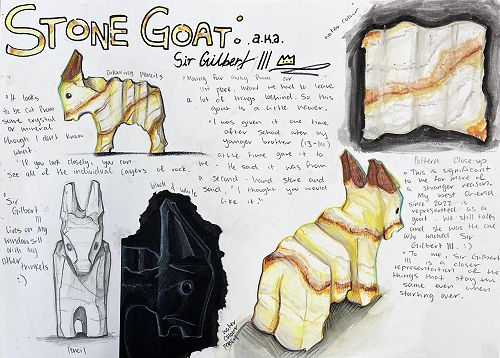 STONE GOAT:
a.k.a.
Sir Gilbert III
water colour
colouring pencils
• It looks
to be cut from
some crystal
or mineral
though I don't know
what.
• If you look closely, you can
see all of the individual layers of rock.
• Moving far away from our
last place, meant we had to leave
a lot of things behind. So this
goat is a little newer.
• I was given it one time
after school when my
younger brother (13-14)
at the time gave it to
me. He said it was from
a second-hand store and
said, 'I thought you would
like it.'
Pattern Close-up
• This is significant
to me for more of
a stranger reason.
My best friend
since 2022 is
represented as a
goat. We still talk
and she was the one
who named Sir
Gilbert III. :)
• To me, Sir Gilbert
III is a closer
representation of the
things that stay the
same even when
starting over.
• Sir
Gilbert III
lives on my
windowsill
with my
other
trinkets
:)
black & white
pencil
water
colour
pencil